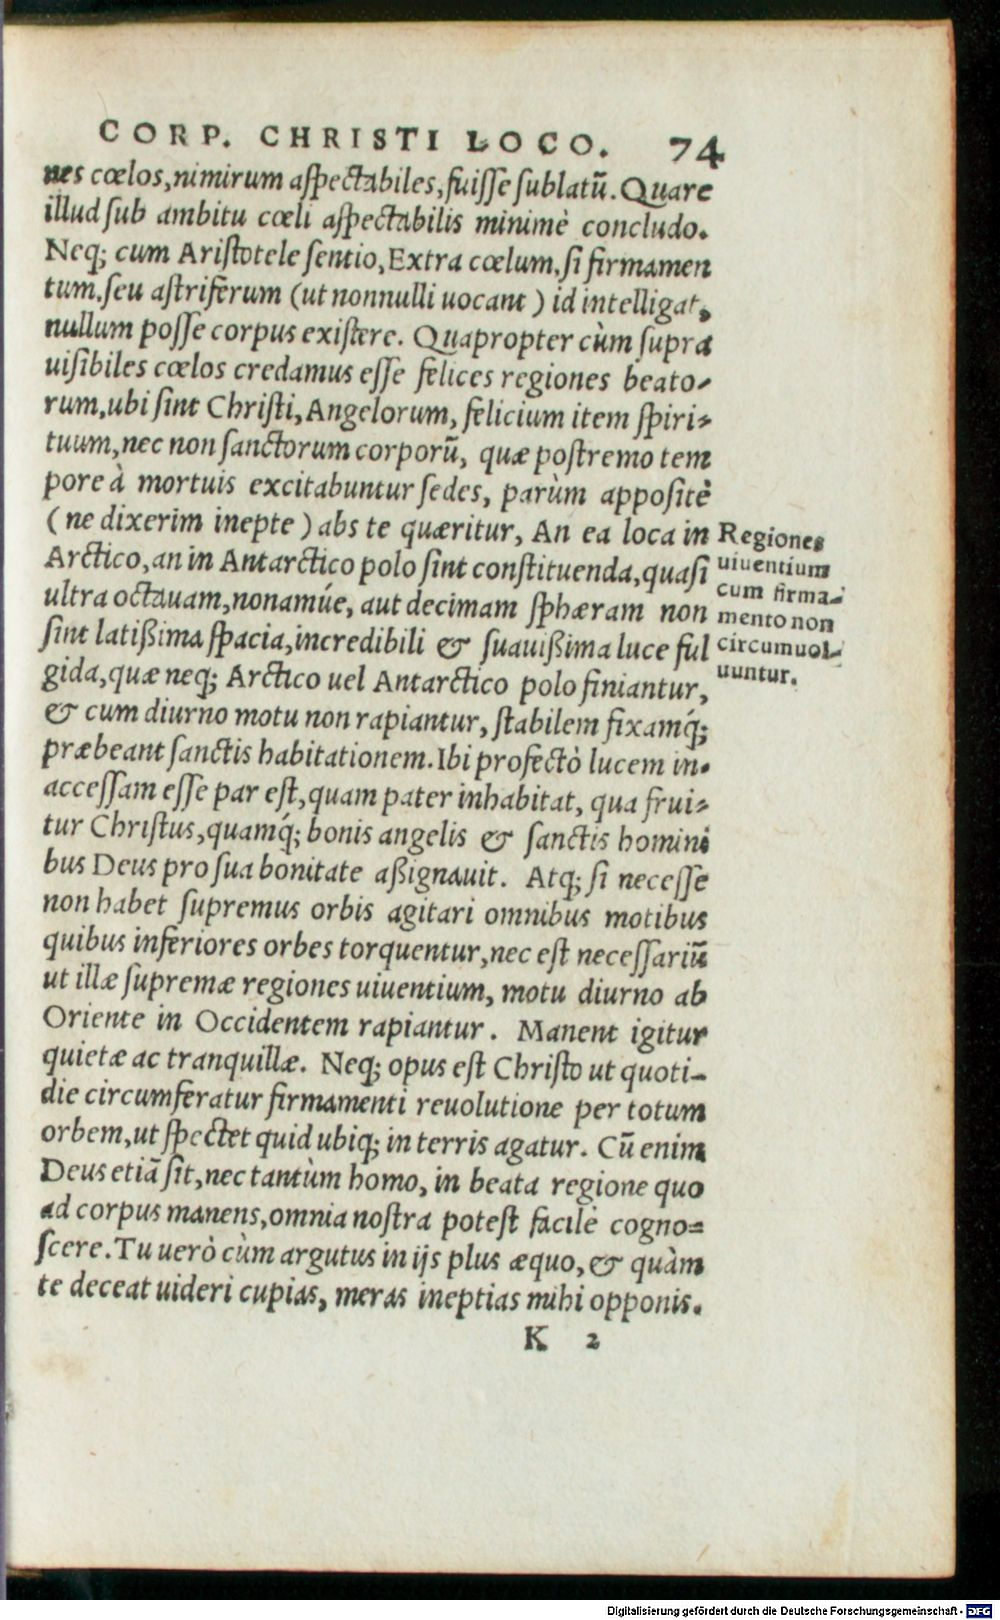 CORP. CHRISTI LOCO. 74
nes cœlos, nimirum aſpectabiles, fuiſſe ſublatū. Quare
illud ſub ambitu cœli aſpectabilis minimè concludo.
Neq; cum Ariſtotele ſentio, Extra cœlum, ſi firmamen
tum, ſeu aſtriferum (ut nonnulli uocant) id intelligat,
nullum poſſe corpus exiſtere. Quapropter cùm ſupra
uiſibiles cœlos credamus eſſe felices regiones beato-
rum, ubi ſint Chriſti, Angelorum, felicium item ſpiri-
tuum, nec non ſanctorum corporū, quæ poſtremo tem
pore à mortuis excitabuntur ſedes, parùm appoſitè
(ne dixerim inepte) abs te quæritur, An ea loca in
Arctico, an in Antarctico polo ſint conſtituenda, quaſi
ultra octauam, nonamúe, aut decimam ſphæram non
ſint latißima ſpacia, incredibili & ſuauißima luce ful
gida, quæ neq; Arctico uel Antarctico polo finiantur,
& cum diurno motu non rapiantur, ſtabilem fixamq́;
præbeant ſanctis habitationem. Ibi profectò lucem in-
acceſſam eſſe par eſt, quam pater inhabitat, qua frui-
tur Chriſtus, quamq́; bonis angelis & ſanctis homini
bus Deus pro ſua bonitate aßignauit. Atq; ſi neceſſe
non habet ſupremus orbis agitari omnibus motibus
quibus inferiores orbes torquentur, nec eſt neceſſariū
ut illæ ſupremæ regiones uiuentium, motu diurno ab
Oriente in Occidentem rapiantur. Manent igitur
quietæ ac tranquillæ. Neq; opus eſt Chriſto ut quoti-
die circumferatur firmamenti reuolutione per totum
orbem, ut ſpectet quid ubiq; in terris agatur. Cū enim
Deus etiā ſit, nec tantùm homo, in beata regione quo
ad corpus manens, omnia noſtra poteſt facilè cogno-
ſcere. Tu uerò cùm argutus in ijs plus æquo, & quàm
te deceat uideri cupias, meras ineptias mihi opponis.
K 2
Regiones
uiuentium
cum firma-
mento non
circumuol-
uuntur.
Digitalisierung gefördert durch die Deutsche Forschungsgemeinschaft - DFG